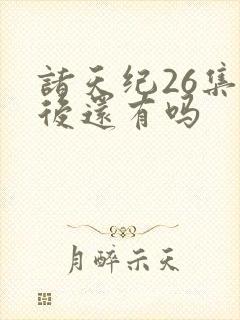 諸天纪26集
後還有吗
月醉示天